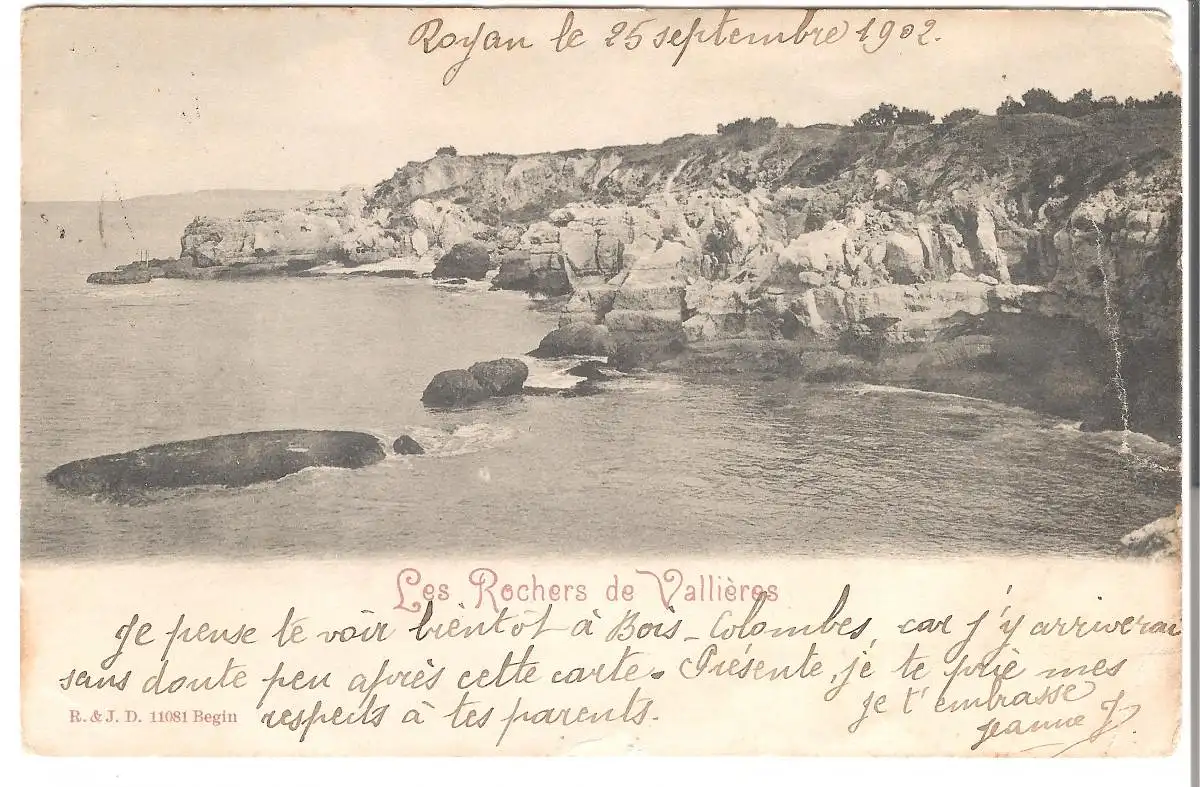 Royan le 25 septembre 1902.
Les Rochers de Vallières
Je pense te voir bientôt à Bois-Colombes, car j'y arriverai
sans doute peu après cette carte. Présente, je te prie mes
respects à tes parents.
je t'embrasse
Jeanne J.
R. & J. D. 11081 Begin